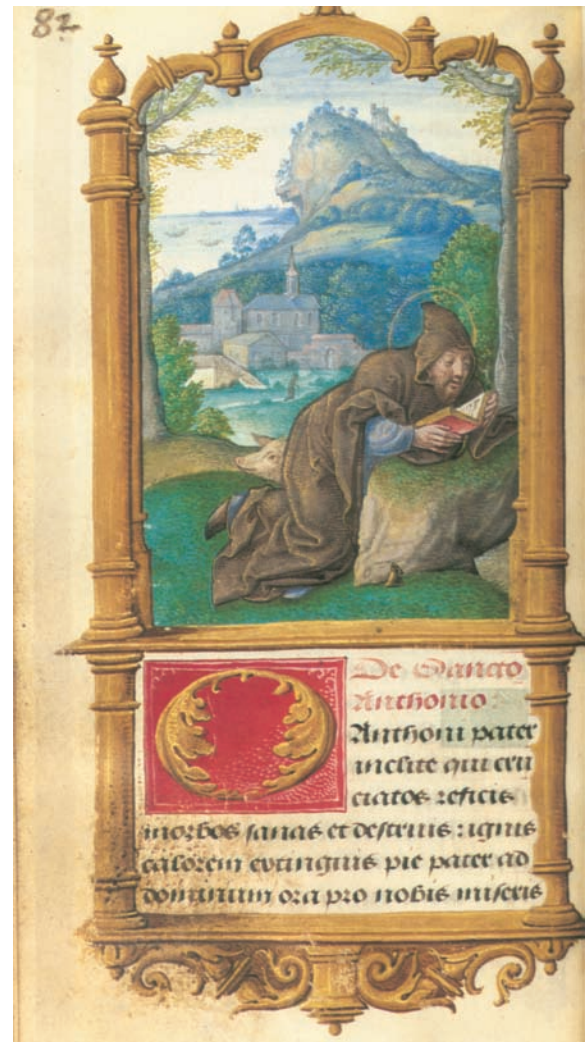 82
De Sancto
Anthonio:
O Anthoni pater
inclite qui cru
ciatos reficis
morbos sanas et destruis : ignis
calorem extinguis pie pater ad
dominum ora pro nobis miseris